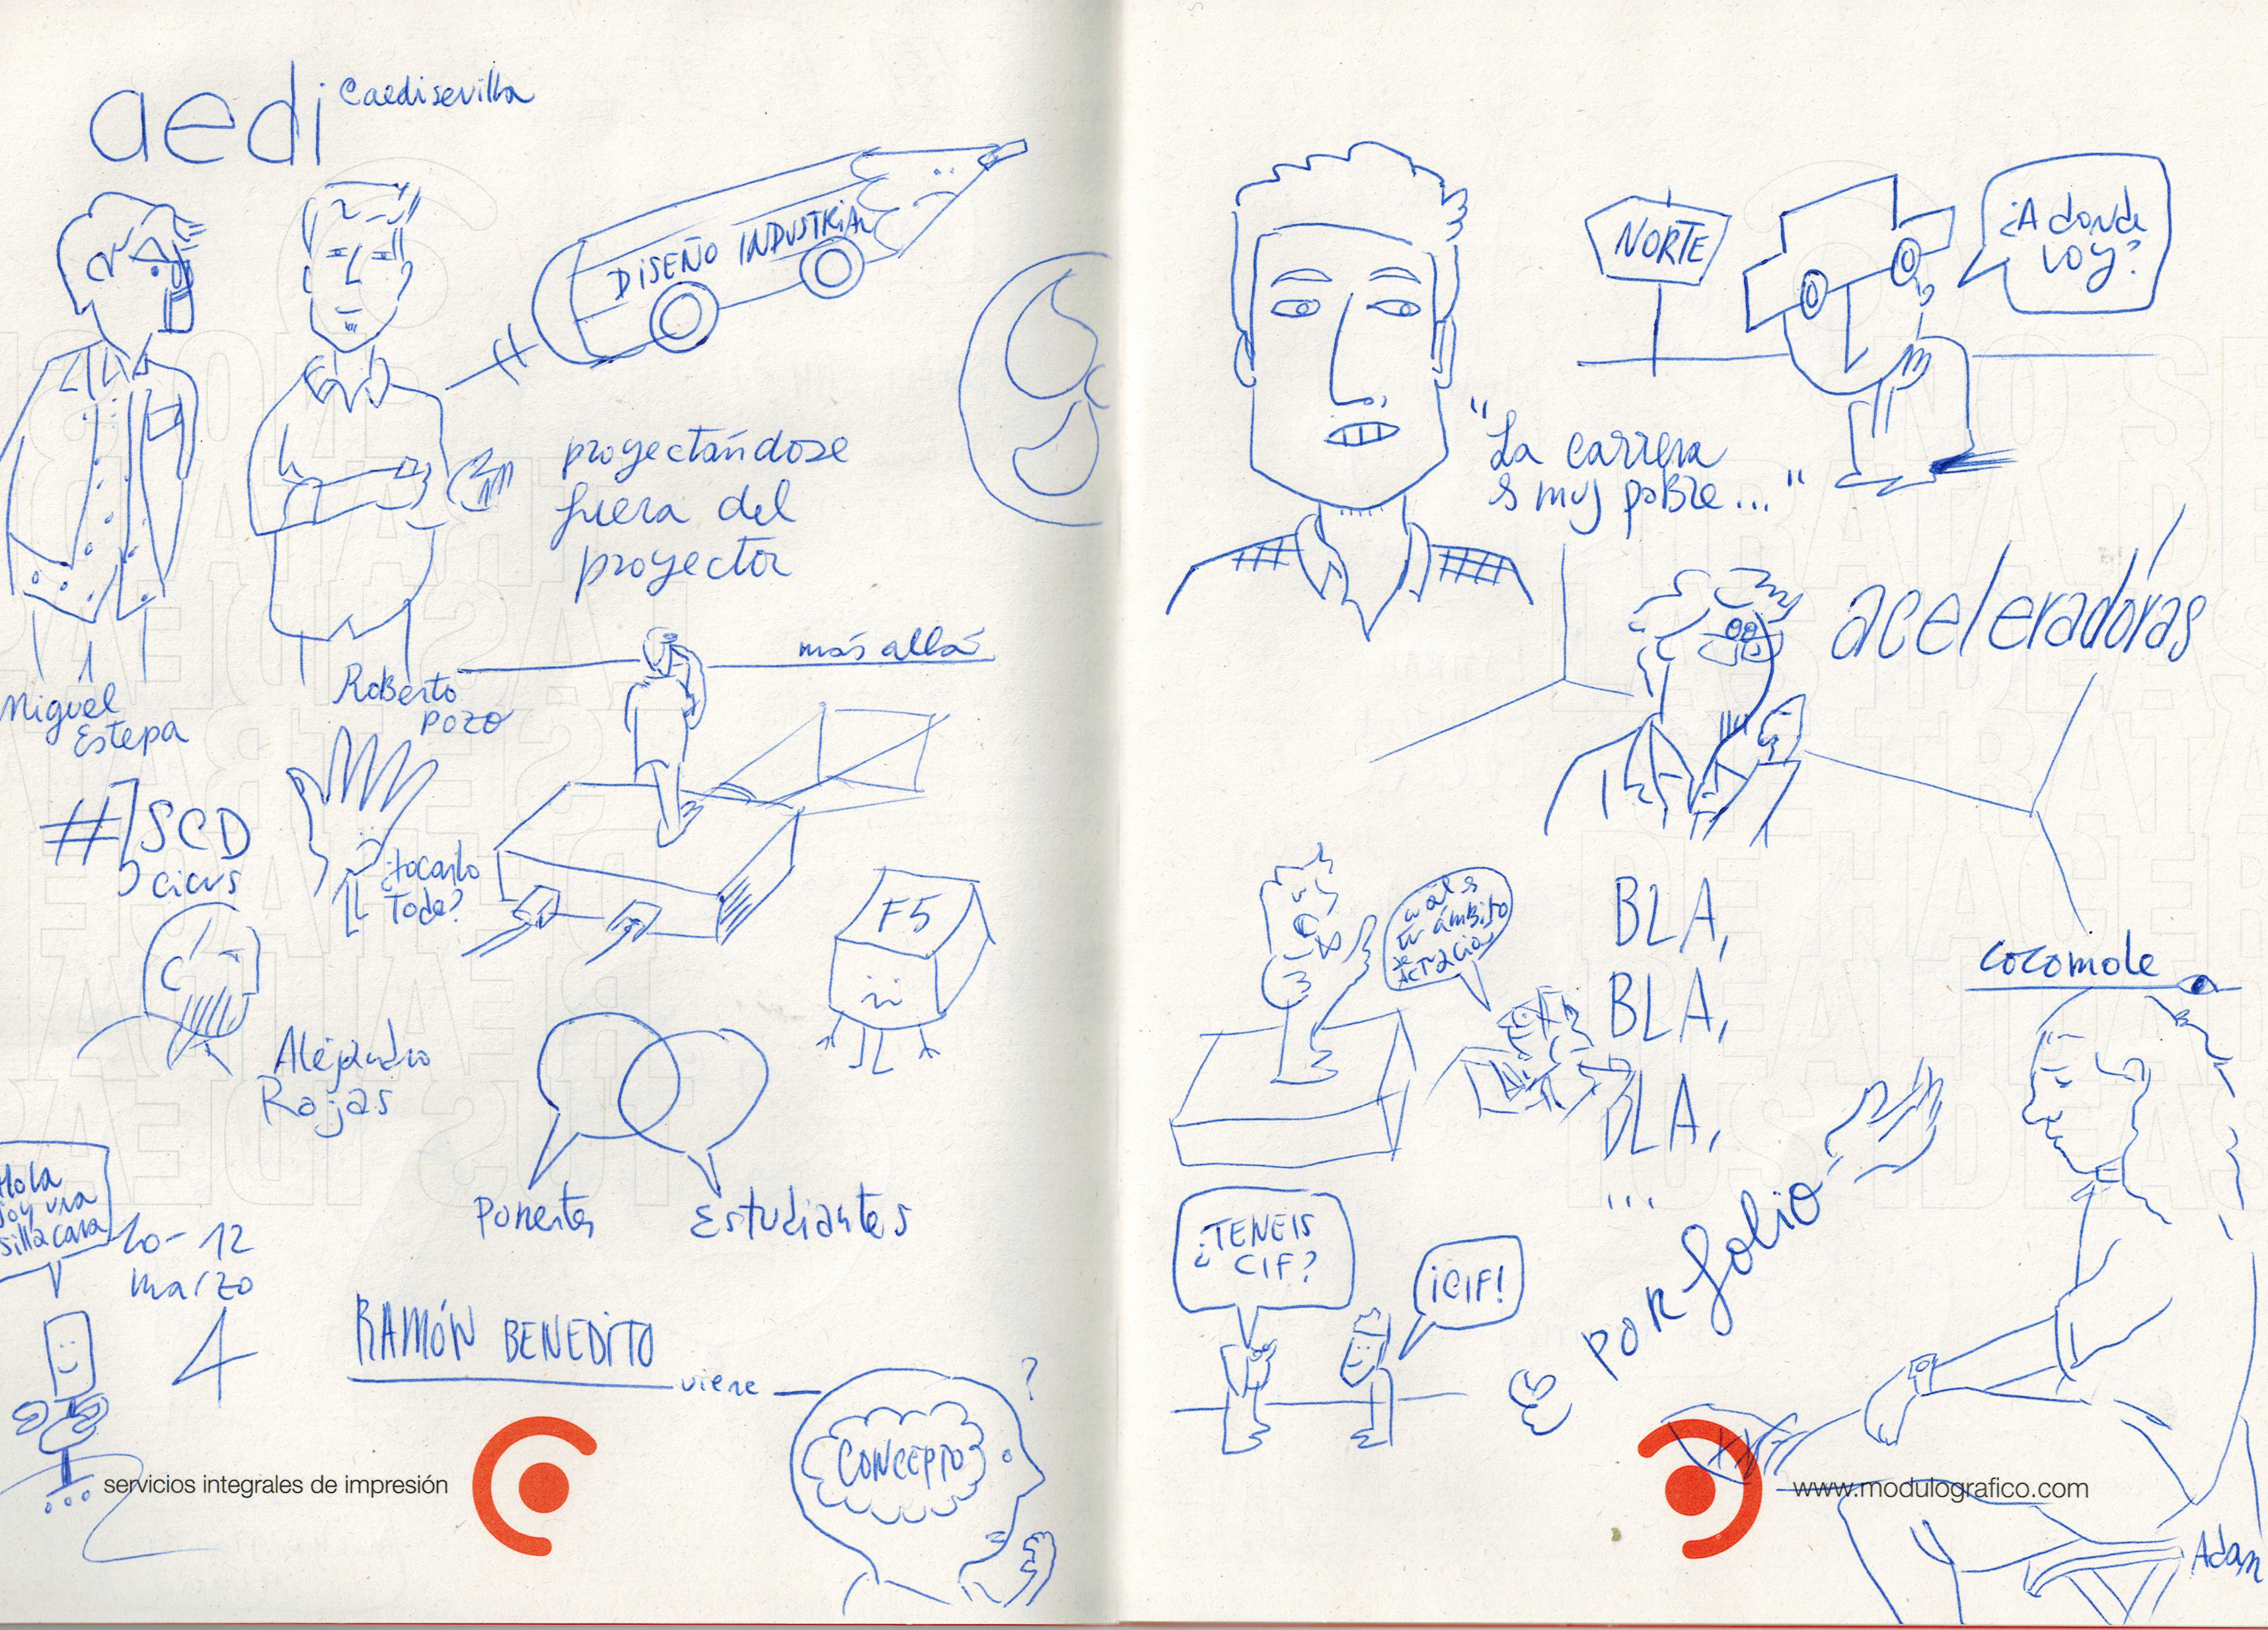 aedi
@aedisevilla
DISEÑO INDUSTRIAL
proyectándose
fuera del
proyector
Miguel
Estepa
Roberto
Pozo
más allá
SCD
cicus
¿tocarlo
todo?
F5
Alejandro
Rojas
Ponentes
Estudiantes
Hola
soy una
silla cara
10-12
marzo
4
RAMÓN BENEDITO
viene
?
CONCEPTO
servicios integrales de impresión
NORTE
¿A donde
voy?
"La carrera
es muy pobre..."
aceleradoras
cuál es
tu ámbito
de
actuación
BLA,
BLA,
BLA,
...
cocomole
¿TENEIS
CIF?
¡CIF!
PORfolio
www.modulografico.com
Adam